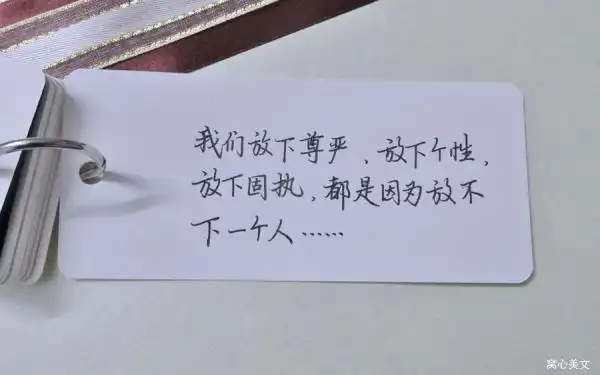 我们放下尊严、放下个性，
放下固执，都是因为放不
下一个人……
窝心美文